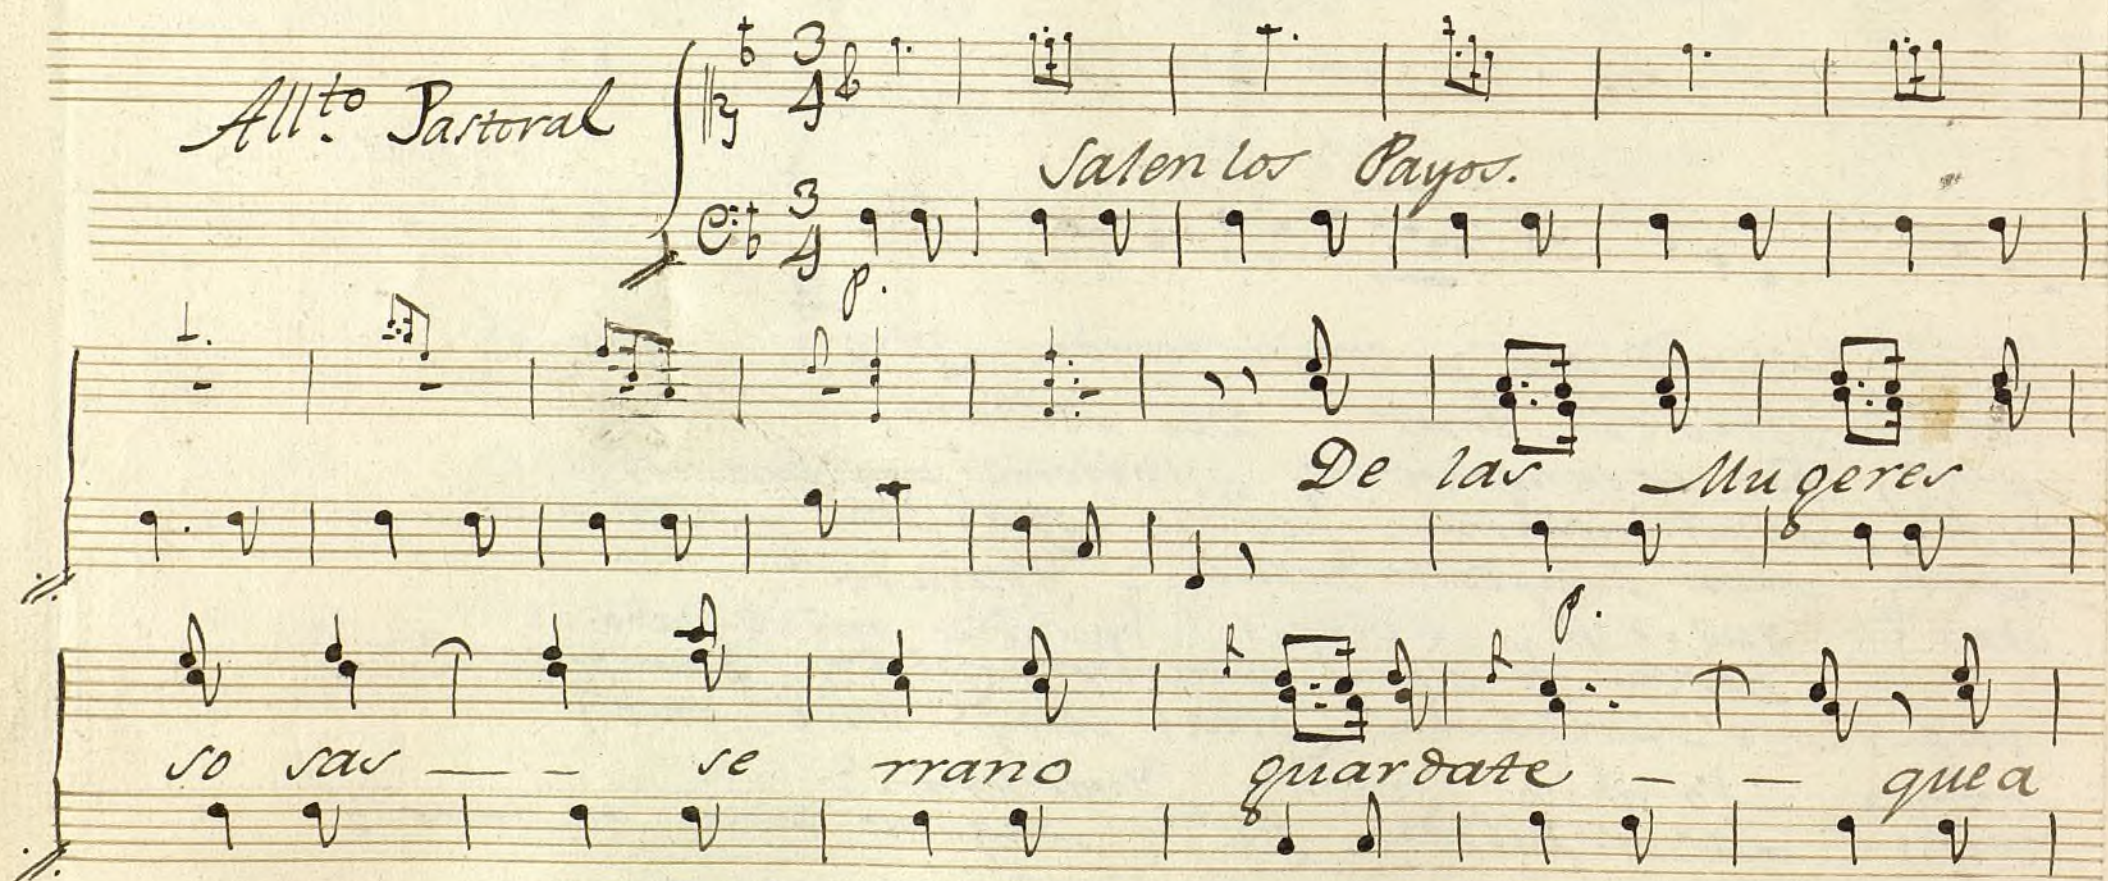 All.to Pastoral
3
4
Salen los Payos.
3
4
p.
De las Mugeres
p.
so sas — — se rrano guardate — — que a